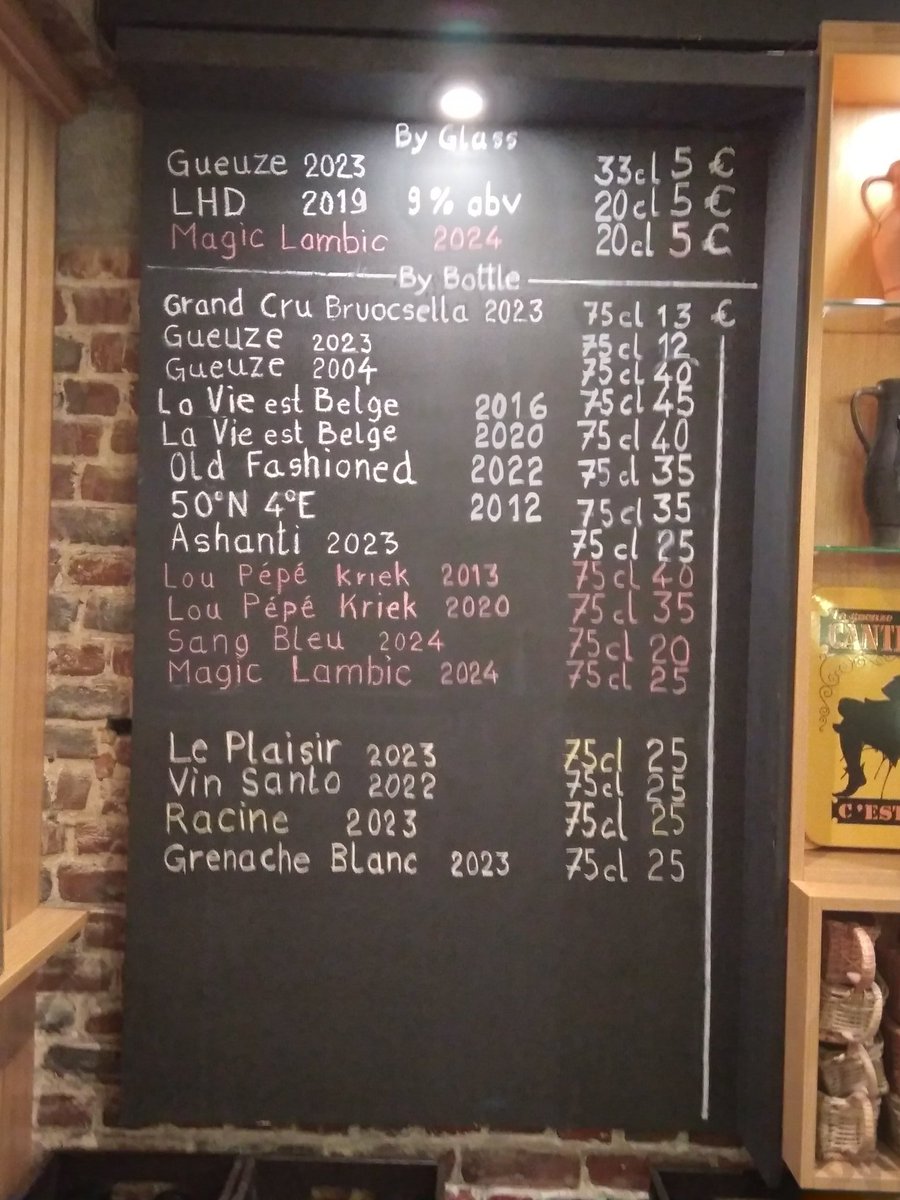 By Glass
Gueuze 2023 33cl 5 €
LHD 2019 9% abv 20cl 5 €
Magic Lambic 2024 20cl 5 €
By Bottle
Grand Cru Bruocsella 2023 75cl 13 €
Gueuze 2023 75cl 12
Gueuze 2004 75cl 40
La Vie est Belge 2016 75cl 45
La Vie est Belge 2020 75cl 40
Old Fashioned 2022 75cl 35
50°N 4°E 2012 75cl 35
Ashanti 2023 75cl 25
Lou Pépé Kriek 2013 75cl 40
Lou Pépé Kriek 2020 75cl 35
Sang Bleu 2024 75cl 20
Magic Lambic 2024 75cl 25
Le Plaisir 2023 75cl 25
Vin Santo 2022 75cl 25
Racine 2023 75cl 25
Grenache Blanc 2023 75cl 25
CANTI
C'EST